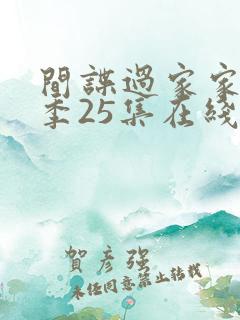 間諜過家家
季25集在綫
賀彦强
未经同意禁止转载